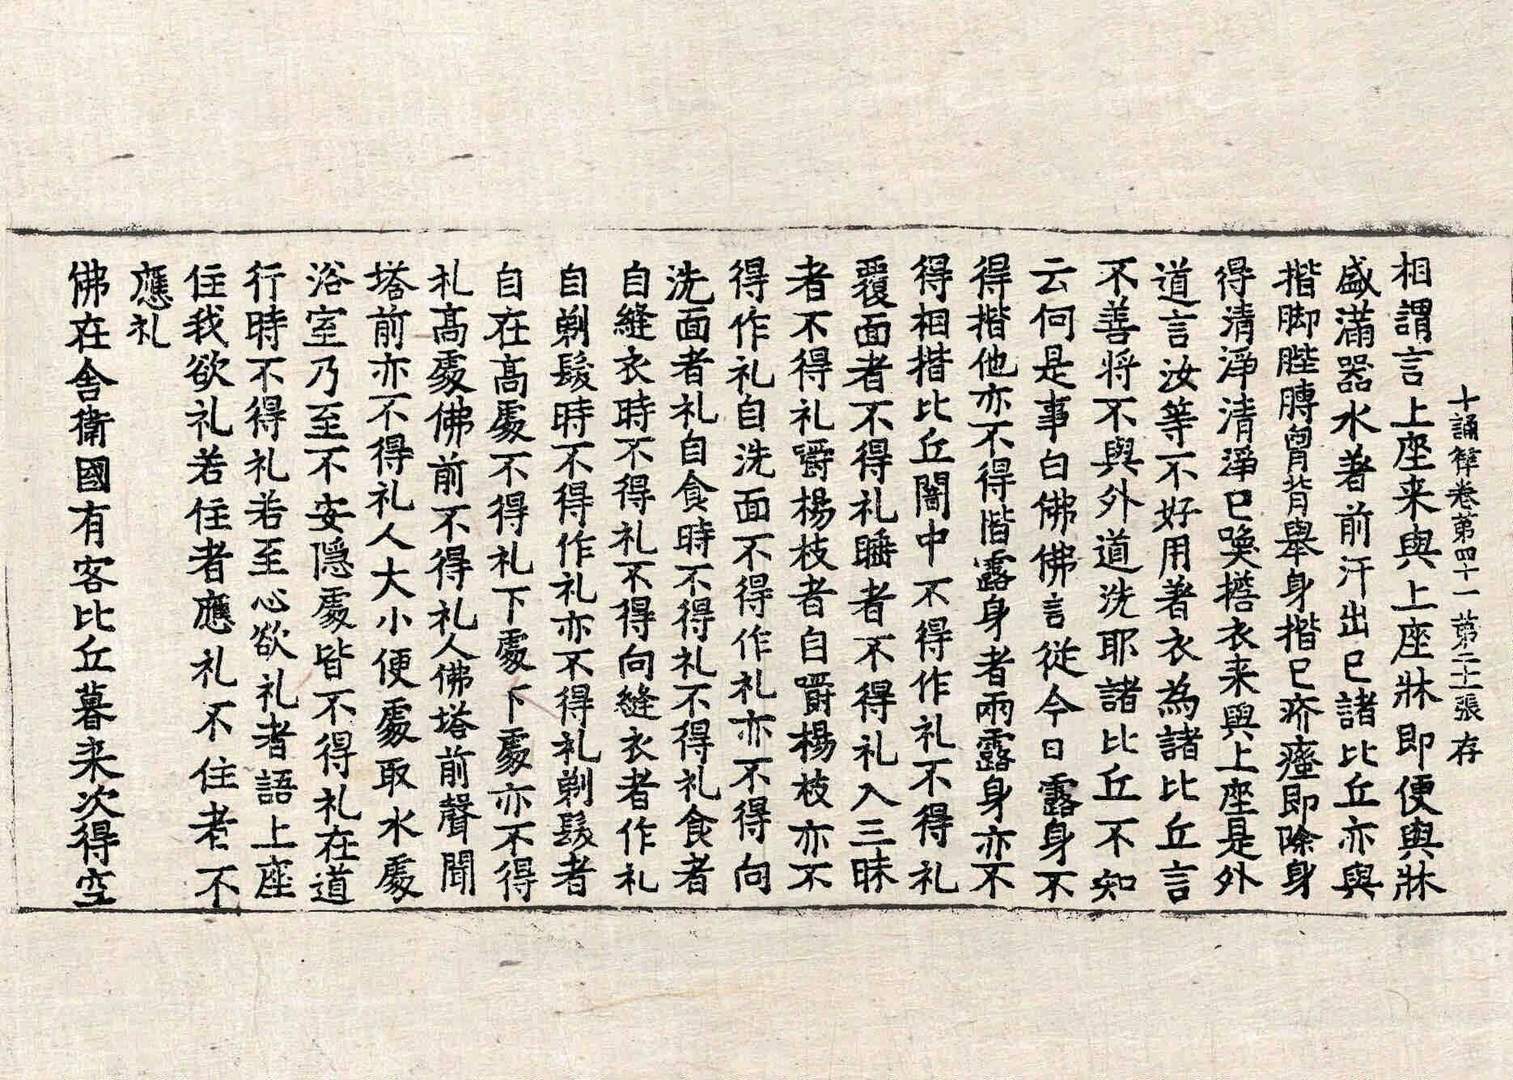 十誦律卷第四十一 第二十二張 存
相謂言上座来與上座牀即便與牀
盛滿器水著前汗出巳諸比丘亦與
揩脚䏶膞脅背舉身揩巳疥瘙即除身
得清淨清淨巳喚撘衣来與上座是外
道言汝等不好用著衣為諸比丘言
不善將不與外道洗耶諸比丘不知
云何是事白佛佛言從今日露身不
得揩他亦不得揩露身者兩露身亦不
得相揩比丘闇中不得作礼不得礼
覆面者不得礼睡者不得礼入三昧
者不得礼嚼楊枝者自嚼楊枝亦不
得作礼自洗面不得作礼亦不得向
洗面者礼自食時不得礼不得礼食者
自縫衣時不得礼不得向縫衣者作礼
自剃髮時不得作礼亦不得礼剃髮者
自在高處不得礼下處下處亦不得
礼高處佛前不得礼人佛塔前聲聞
塔前亦不得礼人大小便處取水處
浴室乃至不安隱處皆不得礼在道
行時不得礼若至心欲礼者語上座
住我欲礼若住者應礼不住者不
應礼
佛在舍衛國有客比丘暮来次得空